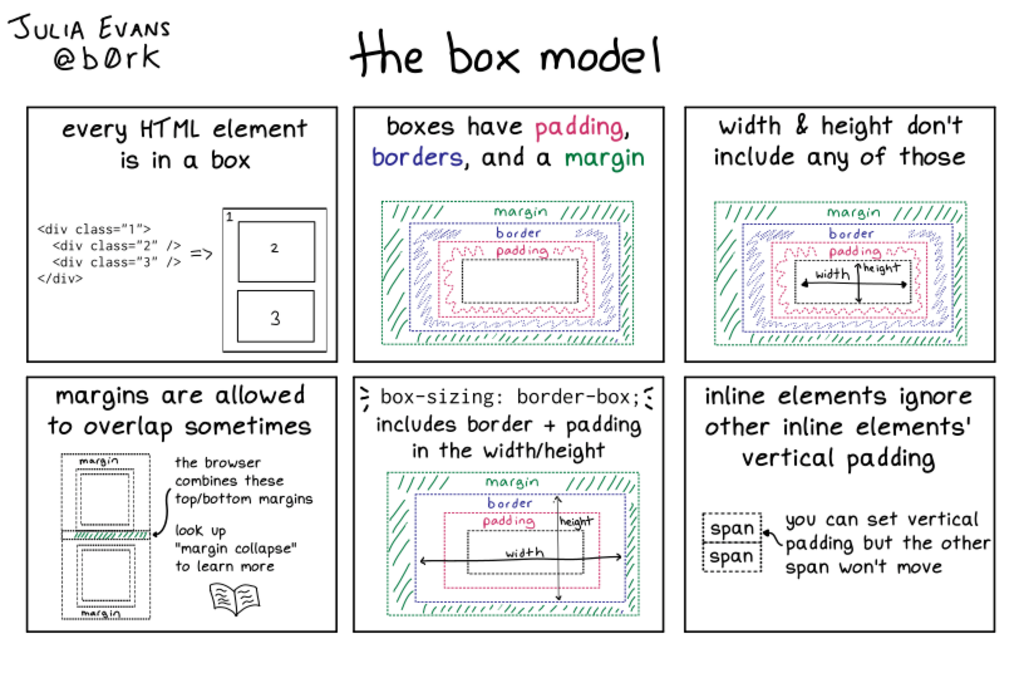 JULIA EVANS
@b0rk
the box model
every HTML element
is in a box
<div class="1">
<div class="2" />
<div class="3" />
</div>
=>
1
2
3
boxes have padding,
borders, and a margin
margin
border
padding
width & height don't
include any of those
margin
border
padding
width
height
margins are allowed
to overlap sometimes
margin
margin
the browser
combines these
top/bottom margins
look up
"margin collapse"
to learn more
box-sizing: border-box;
includes border + padding
in the width/height
margin
border
padding
height
width
inline elements ignore
other inline elements'
vertical padding
span
span
you can set vertical
padding but the other
span won't move